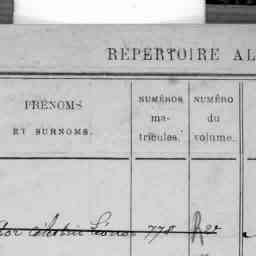 REPERTOIRE AL
PRÉNOMS
ET SURNOMS.
NUMÉROS
ma-
tricules.
NUMÉRO
du
volume.
778